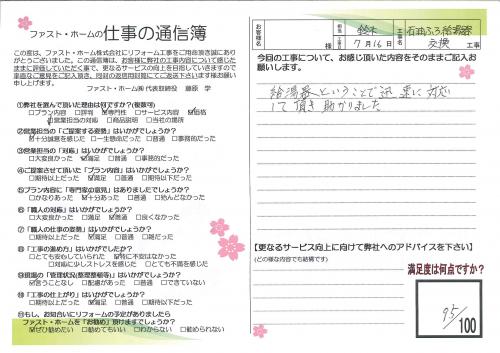 ファスト・ホームの 仕事の通信簿
この度は、ファスト・ホーム株式会社にリフォーム工事をご用命頂き誠にあり
がとうございました。この通信簿は、お客様に弊社の工事内容について感じた
まま評価していただく事で、更なるサービスの向上を目指していきますので
率直なご意見をご記入頂き、同封の返信用封筒にてご返送下さいます様お願い
申し上げます。
ファスト・ホーム㈱ 代表取締役 藤原 学
①弊社を選んで頂いた理由は何ですか?(複数可)
□プラン内容 □評判 ☑専門性 □サービス ☑価格
☑営業担当の対応 □商品説明 □当社の建物
②営業担当の「ご提案する姿勢」はいかがでしょうか?
☑十分誠意を感じた □一生懸命だった □普通 □事務的
③営業担当の「対応」はいかがでしょうか?
□大変良かった ☑満足 □普通 □事務的だった
④ご提案させて頂いた「プラン内容」はいかがでしょうか?
□期待以上だった ☑満足 □普通 □期待以下だった
⑤プラン内容に「専門家の意見」はありましたでしょうか?
□かなりあった ☑十分あった □普通 □殆んどなかった
⑥「職人の対応」はいかがでしょうか?
□大変良かった □満足 ☑普通 □良くなかった
⑦「職人の仕事の姿勢」はいかがでしょうか?
□期待以上だった ☑満足 □普通 □雑だった
⑧「工事の進め方」はいかがでしたか?
□とても安心していられた ☑特に不安はなかった
□対応に少しストレスを感じた □とても不満を感じた
⑨現場の「管理状況(整理整頓等)」はいかがでしょうか?
☑言うことなし □配慮があった □普通 □悪い
⑩「工事の仕上がり」はいかがでしょうか?
□期待以上だった ☑満足 □普通 □期待以下だった
⑪もし、お知合いにリフォームの予定がありましたら
ファスト・ホームを「お勧め」頂けますでしょうか?
☑ぜひ勧めたい □勧めてもいい □わからない □勧められない
お客様名 様
担当 鈴木
7月16日
工事 石油ふろ給湯器
交換 工事
今回の工事について、お感じ頂いた内容をそのままご記入お
願いします。
給湯器ということで迅速に対応
して頂き助かりました
【更なるサービス向上に向けて弊社へのアドバイスを下さい】
(どの様な内容でも結構です)
満足度は何点ですか?
95/100